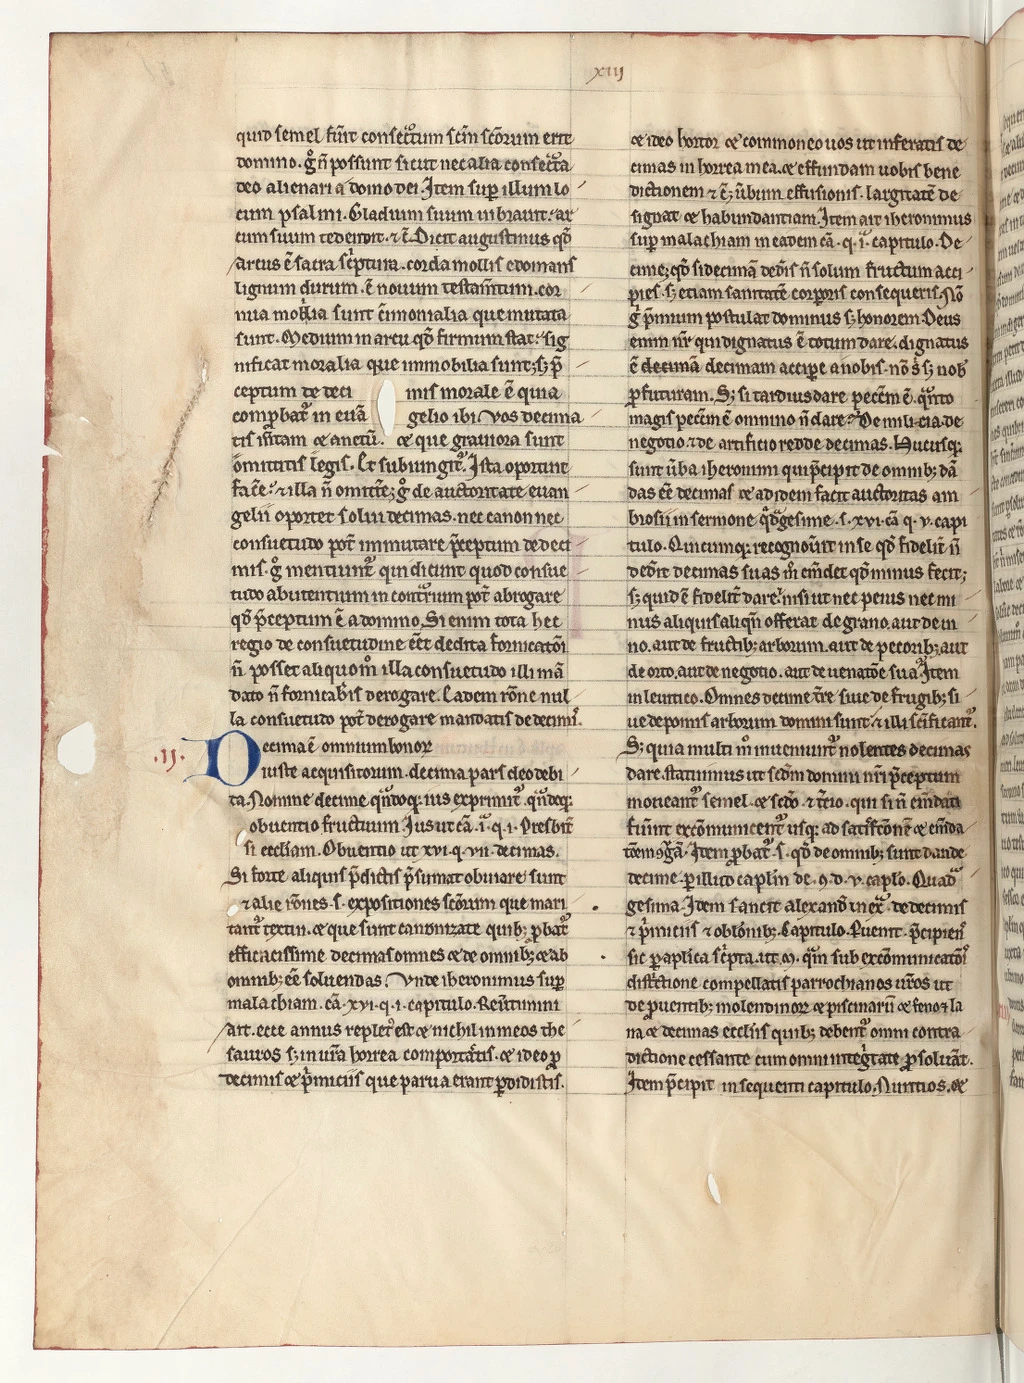 xiij
quid semel fuit consecratum scm scorum erit
domino. g̊ n̄ possunt sicut nec alia consecrata
deo alienari a domo dei. Item sup̄ illum lo
cum psalmi. Gladium suum uibrauit. ar
cum suum tetendit. ⁊ c̄. Dicit augustinus qd̄
arcus ē sacra sc̄ptura. corda mollis edomans
lignum durum. ē nouum testam̄tum. cor
nua mollia sunt cerimonialia que mutata
sunt. Medium in arcu qd̄ firmum stat. sig
nificat moralia que immobilia sunt. sꝫ p̄
ceptum de deci mis morale ē quia
comprobat̄ in euā gelio ibi. Vos decima
tis m̄tam ⁊ anetū. ⁊ que grauiora sunt
omittitis legis. Et subiungit̄. Ista oportuit
fac̄e. ⁊ illa n̄ omitt̄e. g̊ de auctoritate euan
gelii oportet solui decimas. nec canon nec
consuetudo pot̄ immutare p̄ceptum de deci
mis. g̊ mentiunt̄ qui dicunt quod consue
tudo abutentium in cont̄rium pot̄ abrogare
qd̄ p̄ceptum ē a domino. Si enim tota hec
regio de consuetudine eēt dedita fornicatōi
n̄ posset aliquom̊ illa consuetudo illi mā
dato n̄ fornicab̄is derogare. Eadem rōne nul
la consuetudo pot̄ derogare mandatis de decimis.
.ij. Decima ē omnium bonor
iuste acquisitorum. decima pars deo debi
ta. Nomine decime qn̄doqꝫ ius exprimit̄. qn̄doqꝫ
obuentio fructuum. Ius ut cā. i. q. i. Presbit̄
si eccl̄iam. Obuentio ut xvi. q. vii. decimas.
Si forte aliquis p̄dictis p̄sumat obuiare sunt
⁊ alie rōnes. s. expositiones scorum que mari
tant̄ textui. ⁊ que sunt canonizate quibꝫ probat̄
efficacissime decimas omnes ⁊ de omnibꝫ ⁊ ab
omnibꝫ eē soluendas. Vnde iheronimus sup̄
malachiam. cā. xvi. q. i. capitulo. Reūtimini
Ait. ecce annus replet̄ est ⁊ nichil in meos the
sauros sꝫ in ur̄a horrea comportatis. ⁊ ideo p̄
decimis ⁊ p̄miciis que parua erant p̄didistis.
⁊ ideo hortor ⁊ commoneo uos ut inferatis de
cimas in horrea mea. ⁊ effundam uobis bene
dictionem ⁊ c̄. ūbum effusionis. largitatē de
signat ⁊ habundantiam. Item ait iheronimus
sup̄ malachiam in eadem cā. q. i. capitulo. De
cime. qd̄ si decimā ded̄is n̄ solum fructum acci
pies. sꝫ etiam sanitatē corporis consequeris. Nō
g̊ p̄mium postulat dominus sꝫ honorem. Deus
enim nr̄ qui dignatus ē totum dare. dignatus
ē decimā decimam accipe a nobis. nō s̄ sꝫ uob̄
profuturam. Sꝫ si tardius dare peccm̄ ē. qn̄to
magis peccm̄ ē omnino n̄ dare. De milicia de
negotio. ⁊ de artificio redde decimas. Hucusqꝫ
sunt ūba iheronimi qui p̄cipit de omnibꝫ dā
das eē decimas. ⁊ ad idem facit auctoritas am
brosii in sermone qd̄gesime. s. xvi. cā. q. v. capi
tulo. Quicumqꝫ recognoūit in se qd̄ fidelit̄ n̄
ded̄it decimas suas m̊ emdet qd̄ minus fecit.
sꝫ quid ē fidelit̄ dare. nisi ut nec peius nec mi
nus aliquis aliqn̄ offerat de grano. aut de ui
no. aut de fructibꝫ arborum. aut de pecoribꝫ. aut
de orto. aut de negotio. aut de uenatōe sua. Item
in leuitico. Omnes decime t̄re siue de frugibꝫ si
ue de pomis arborum domini sunt. ⁊ illi sc̄ificant̄.
Sꝫ quia multi m̊ inueniunt̄ nolentes decimas
dare. statuimus ut scdm domini nr̄i p̄ceptum
moneant̄ semel. ⁊ scdo. ⁊ t̄cio. qui si n̄ emdati
fūint excōmunicent̄ usqꝫ ad satisfc̄onē ⁊ emda
tōem ꝯg̊ā. Item probat̄. s. qd̄ de omnibꝫ sunt dande
decime. p̄ illud capl̄m de. ꝯ. d. v. caplo. Quad̄
gesima. Item sancit alexand̄ in ex̄. de decimis
⁊ p̄miciis ⁊ oblōnibꝫ. Capitulo. Puenit. p̄cipien̄
sic p̄ aplica sc̄pta. ut. ꝯ. qūin sub excōmunicatōis
disttictione compellatis parrochianos uros ut
de puentibꝫ molendinor̄ ⁊ piscinarū ⁊ feno ⁊ la
na ⁊ decimas ecclesiis quibꝫ debent̄ omni contra
dictione cessante cum omni integ̊tate psoluāt.
Item p̄cipit in sequenti capitulo. Nuntios. ⁊